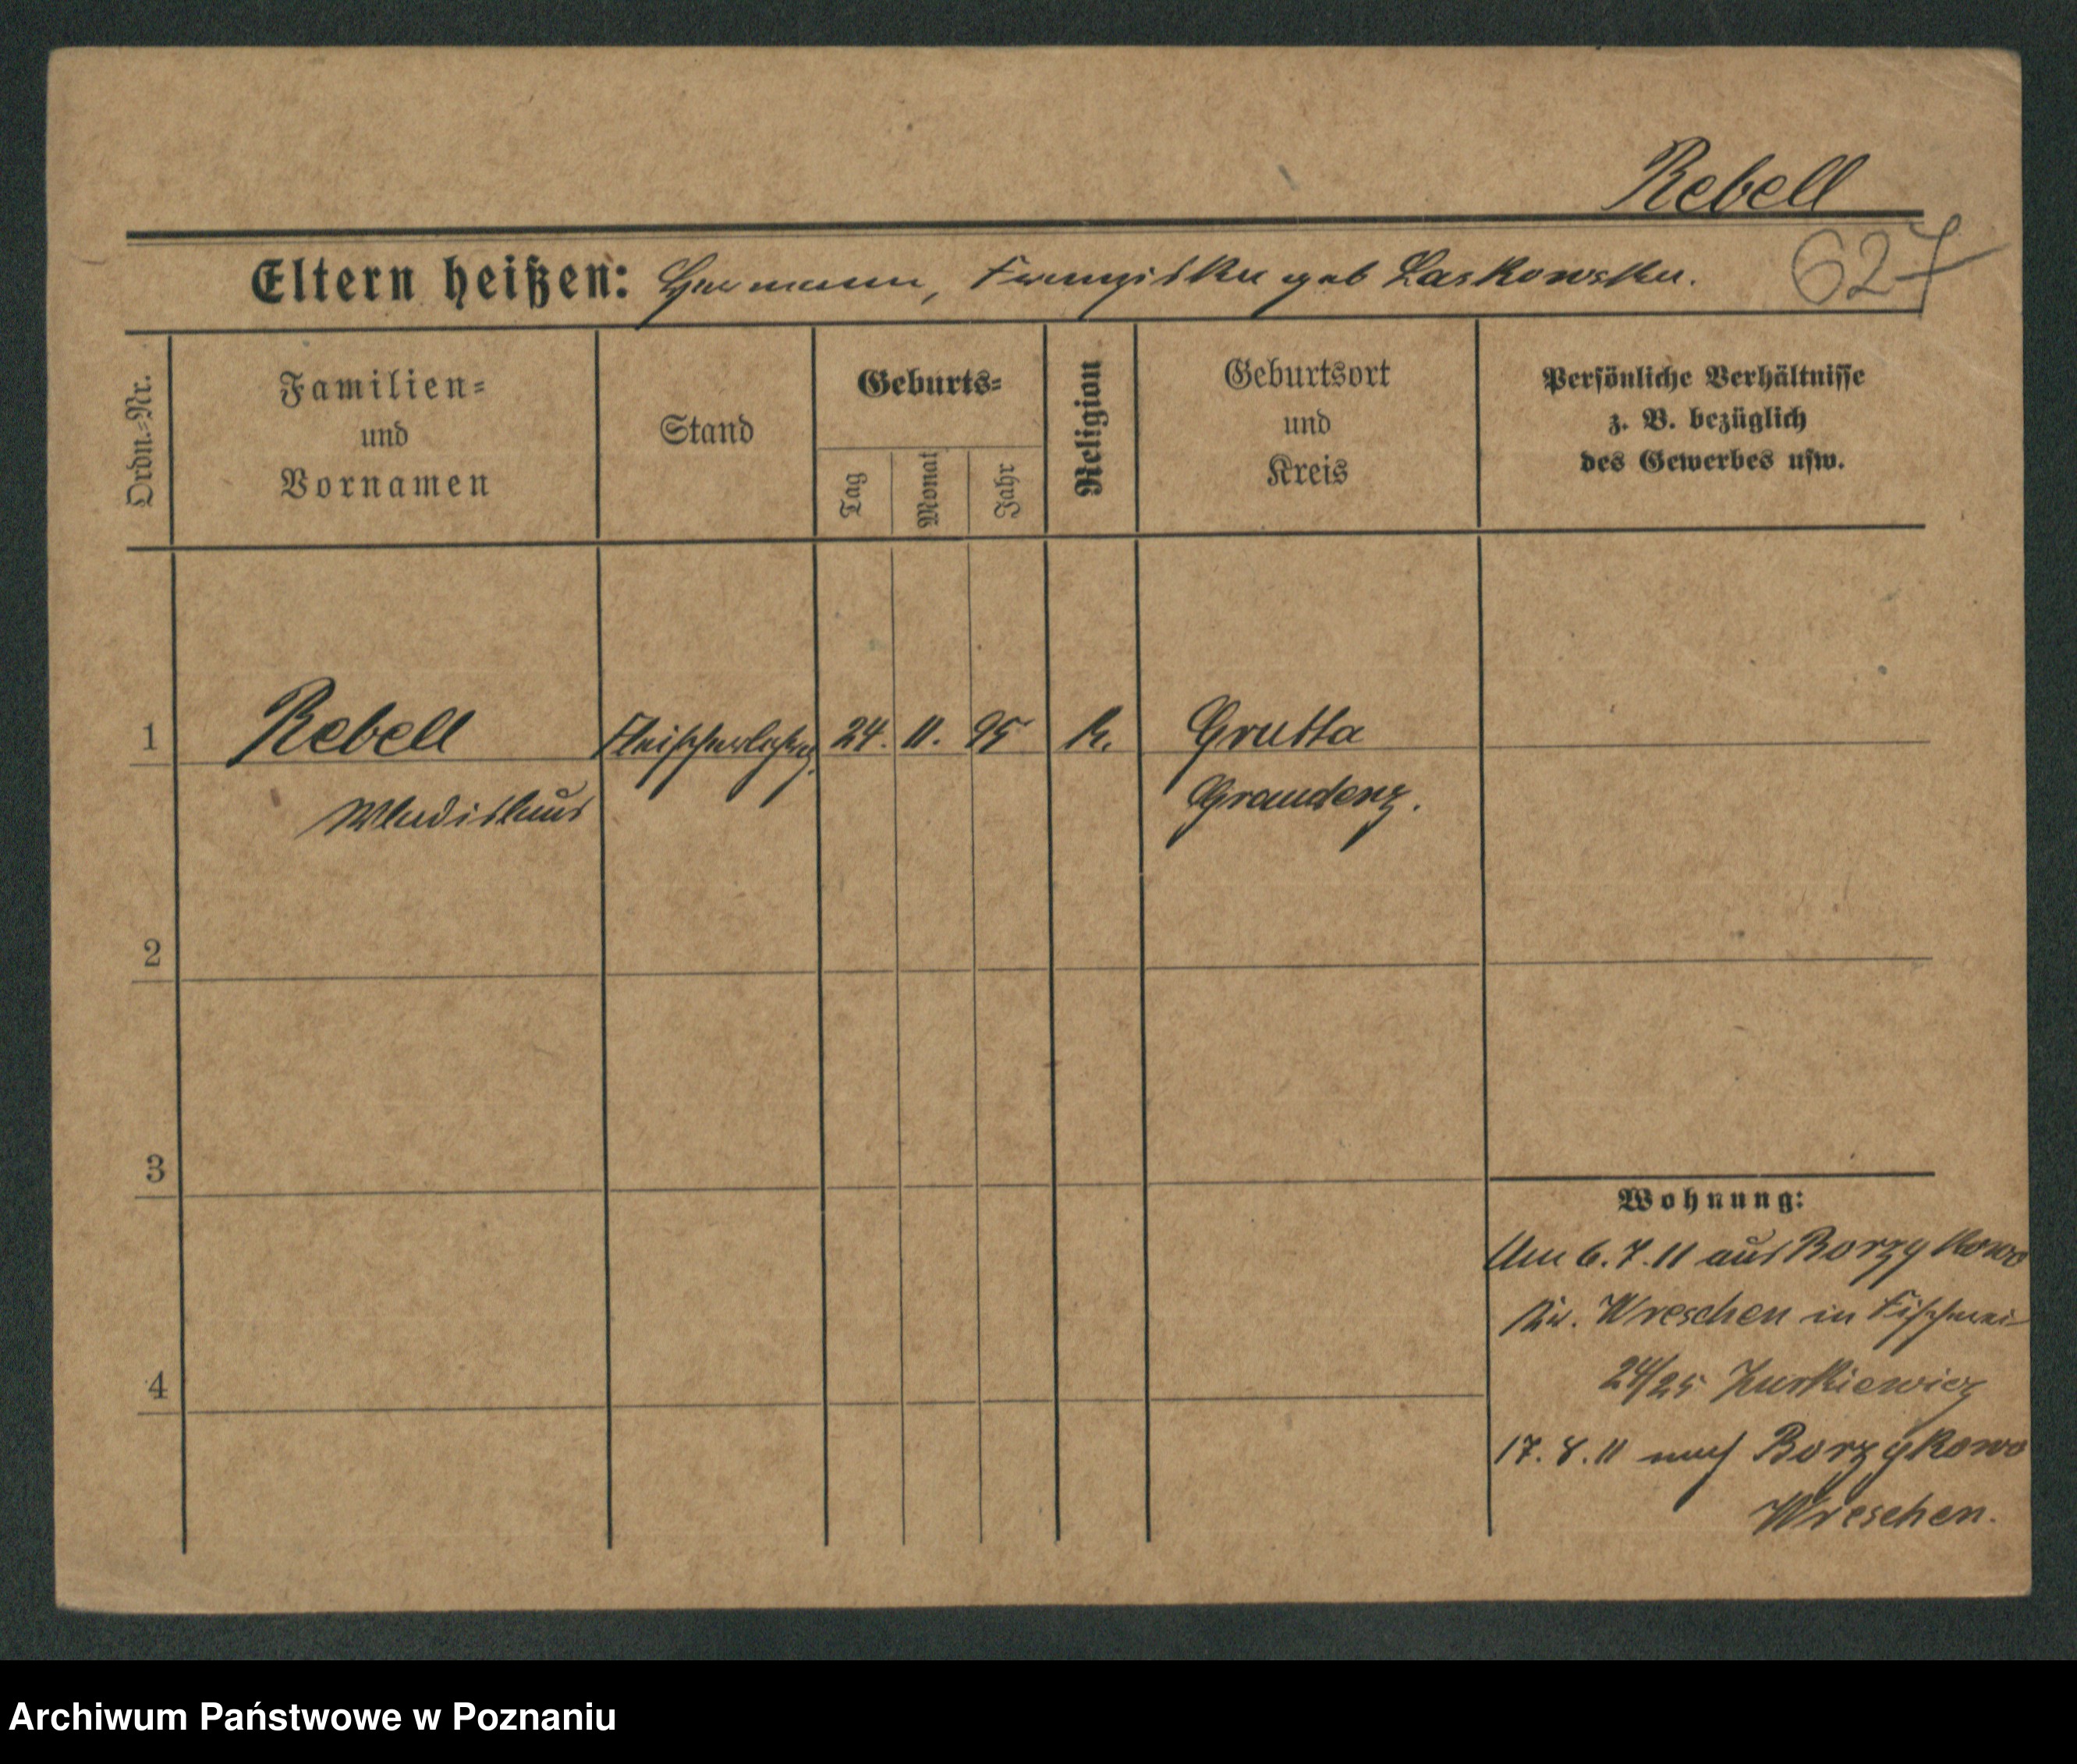 Rebell
Eltern heißen: Hermann, Franziska geb Laskowska.
627
Ordn.-Nr.
Familien-
und
Vornamen
Stand
Geburts-
Tag
Monat
Jahr
Religion
Geburtsort
und
Kreis
Persönliche Verhältnisse
z. B. bezüglich
des Gewerbes usw.
1 Rebell Fleischerlehrg. 24. 11. 95 k. Grutta
Wladislaus Graudenz.
2
3
Wohnung:
Am 6.7.11 aus Borzykowo
Kr. Wreschen in Fischerei
24/25 Kurkiewicz
4
17.8.11 nach Borzykowo
Wreschen.
Archiwum Państwowe w Poznaniu